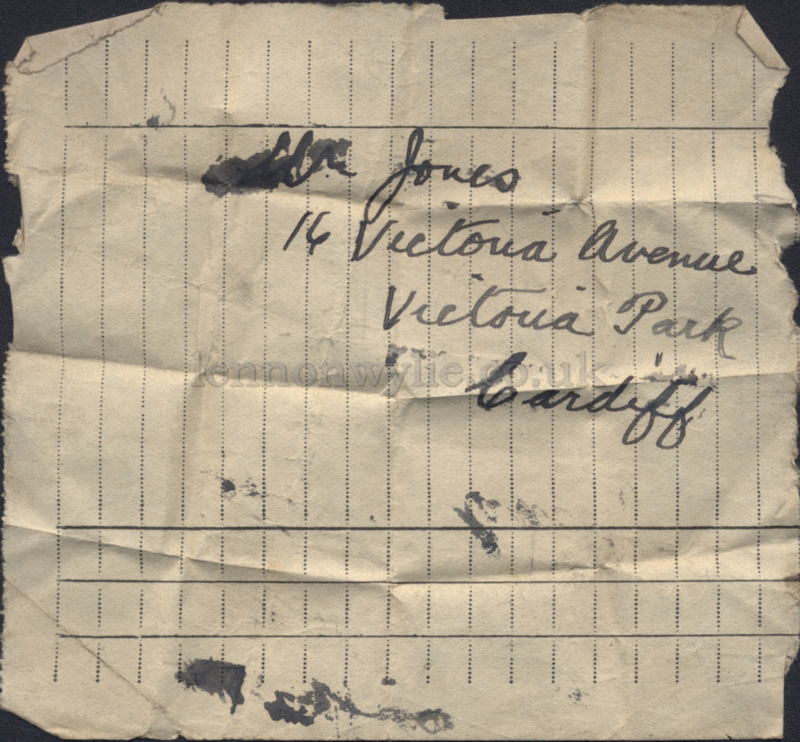 Mr Jones
16 Victoria Avenue
Victoria Park
lennonwylie.co.uk
Cardiff